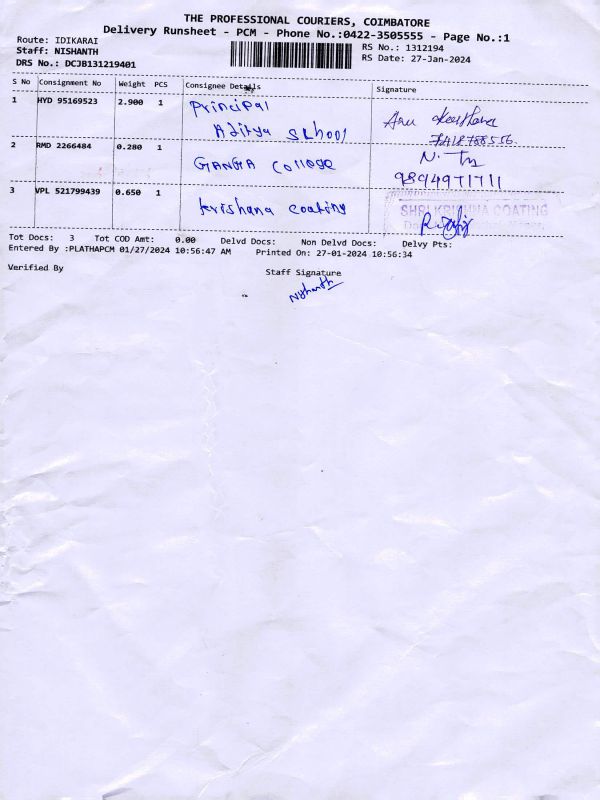 THE PROFESSIONAL COURIERS, COIMBATORE
Delivery Runsheet - PCM - Phone No.:0422-3505555 - Page No.:1
Route: IDIKARAI
Staff: NISHANTH
DRS No.: DCJB131219401
RS No.: 1312194
RS Date: 27-Jan-2024
S No Consignment No Weight PCS Consignee Details Signature
1 HYD 95169523 2.900 1 Principal
Aditya School
2 RMD 2266484 0.280 1 GANGA College
9894971711
3 VPL 521799439 0.650 1 krishana coating
SHRI KRISHNA COATING
Tot Docs: 3 Tot COD Amt: 0.00 Delvd Docs: Non Delvd Docs: Delvy Pts:
Entered By :PLATHAPCM 01/27/2024 10:56:47 AM Printed On: 27-01-2024 10:56:34
Verified By
Staff Signature
Nishanth